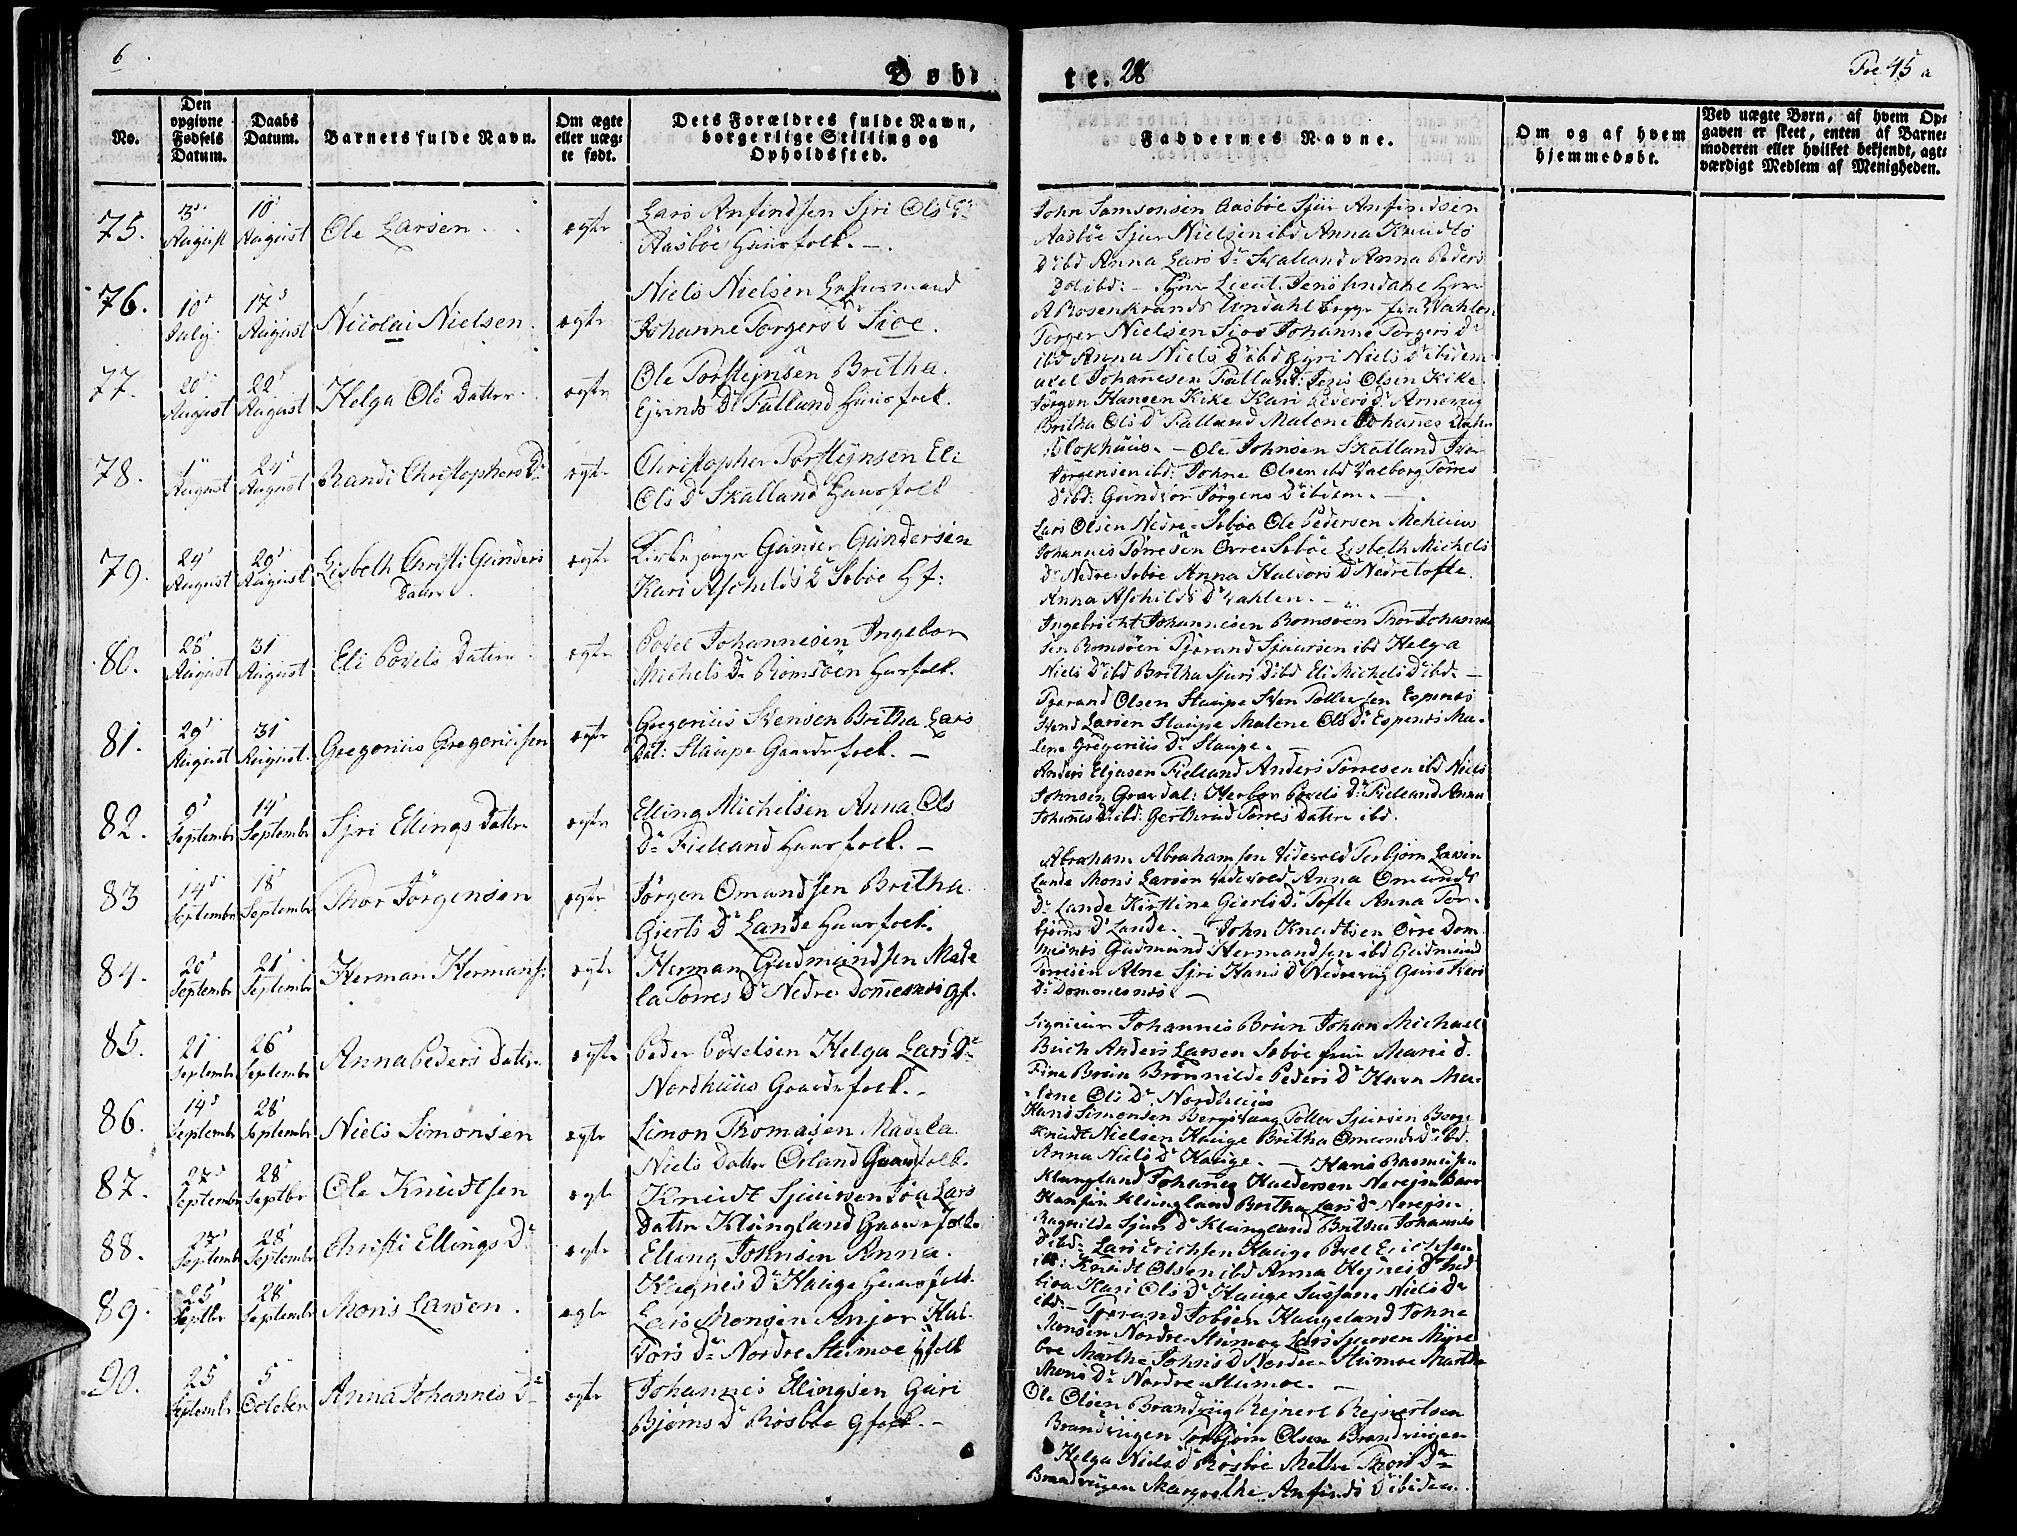 6
Døb-
te. 28
Fol 45 a
No.
Den opgivne Fødsels Datum.
Daabs Datum.
Barnets fulde Navn.
Om ægte eller uægte født.
Dets Forældres fulde Navn, borgerlige Stilling og Opholdssted.
Faddernes Navne.
Om og af hvem hjemmedøbt.
Ved uægte Børn, af hvem Opgaven er skeet, enten af Barnemoderen eller hvilket bekjendt, agtværdigt Medlem af Menigheden.
75.
3 August
10 August
Ole Larsen
ægte
Lars Anfindsen Sjri Ols Dr
Aasbøe Huusfolk.
John Samsonsen Aasbøe Sjur Anfindsen
Aasbøe Sjur Nielsen ibd Anna Knuds
Dr ibd Anna Lars Dr Skalland Anna Peders
Dr ibd:
76.
10 July
17 August
Nicolai Nielsen
ægte
Niels Nielsen Huusmand
Johanne Torgers Dr Sioe.
Herr Lieut. Jens Undahl Herr
A Rosenkrands Undahl begge fra Wahlen
Torger Nielsen Sioe Johanne Torgers Dr
ibd Anna Niels Dr ibd Gyri Niels Dr ibidem
77.
20 August
22 August
Helga Ols Datter
ægte
Ole Torsteynsen Britha
Ejvends Dr Falland Huusfolk.
Axel Johannesen Falland: Jens Olsen Kike
Jörgen Hansen Kike Kari Sivers Dr Arnevig
Britha Ols Dr Falland Malene Johannes Datter
Klokhuus.
78.
1 August
24 August
Randi Christophers Dr
ægte
Christopher Torsteynsen Eli
Ols Dr Skalland Huusfolk
Ole Johnsen Skalland Iver
Jörgensen ibd: Johne Olsen ibd Valborg Torres
Dr ibd: Gundvor Jörgens Dr ibidem.
79.
24 August
29 August
Lisbeth Christi Gunders
Datter
ægte
Kirkesanger Gunder Gundersen
Kari Aschilds Dr Sebøe Hf:
Lars Olsen Nedre-Sebøe Ole Pedersen Mehuus
Johannes Torresen Övre Sebøe Lisbeth Michels
Dr Nedre Sebøe Anna Halvors Dr Nedre Tofte
Anna Aschilds Dr Vahlen.
80.
28 August
31 August
Eli Povels Datter
ægte
Povel Johannesen Ingebor
Michels Dr Romsöen Huusfolk.
Ingebricht Johannesen Romsöen Thor Johannes
sen Romsöen Tjerand Sjuursen ibd Helga
Niels Dr ibd Britha Sjurs Dr ibd Eli Michels Dr ibd.
81.
29 August
31 August.
Gregorius Gregoriussen
ægte
Gregorius Svensen Britha Lars
Dat: Staupe Gaardefolk.
Tjerand Olsen Staupe Sven Tollevsen Espenes
Svend Larsen Staupe Malene Ols Dr Espenes Ma-
lene Gregorius Dr Staupe.
82.
9 September
14 September
Sjri Ellings Datter
ægte
Elling Michelsen Anna Ols
Dr Fielland Huusfolk.
Anders Eljasen Fielland Anders Torresen ibd Niels
Johnsen Gravdal: Herbor Povels Dr Fielland Anna
Johannes Dr ibd: Gertherud Torres Datter ibd.
83
14 September
18 September
Thor Jörgensen
ægte
Jörgen Omundsen Britha
Gierts Dr Lande Huusfolk.
Abraham Abrahamsen Videvold Torbjörn Larsen
Lande Mons Larsen Videvold Anna Omunds
Dr Lande Kirstine Gierts Dr Tofte Anna Tor-
björns Dr Lande.
84.
20 September
21 September
Herman Hermans:
ægte
Herman Gudmundsen Made
la Torres Dr Nedre Dommesnes Gf.
John Knudtsen Övre Dom
mesnes Gudmund Hermandsen ibd Gudmund
Torresen Alne Sjri Hans Dr Nedrevig Guro Ivers
Dr Dommesnes.
85.
21 September
26 September
Anna Peders Datter
ægte
Peder Povelsen Helga Lars Dr
Nordhuus Gaardefolk.
Signieur Johannes Brun Johan Michael
Buch Anders Larsen Sebøe frue Marie d.
Fine Brun Brönnilde Peders Dr Havn Ma-
lene Ols Dr Nordhuus
86.
14 September
28 September
Niels Simonsen
ægte
Simon Thomasen Madela
Niels Datter Orland Gaardfolk.
Hans Simonsen Bergsvaag Tollev Sjursen Berge
Knudt Nielsen Hauge Britha Omunds Dr ibd.
Anna Niels Dr Hauge.
87.
27 September
28 Septbr
Ole Knudtsen
ægte
Knudt Sjuursen Joa Lars
Datter Klungland Gaardefolk.
Hans Rasmussen
Klungland Johannes Haldorsen Nerejm Baar
Hansen Klungland Britha Lars Dr Nerejm
Ragnilde Sjurs Dr Klungland Britha Johannes
Dr ibd:
88.
27 September
28 September
Christi Ellings Dr
ægte
Elling Johnsen Anna
Hagnes Dr Hauge Huusfolk.
Lars Erichsen Hauge Povel Erichsen
ibd: Knudt Olsen ibd Anna
Kari Ols Dr Hauge Sussane Niels Dr
ibd.
89.
25 Septbr
28 September
Mons Larsen.
ægte
Lars Monsen Anjer Hal-
vors Dr Nordre Stumoe Gfolk
Tjerand Tobsen Haugeland Johne
Monsen Nordre Stumoe Lars Sjursen Myre
Marthe Johns Dr Nordre Stumoe Marthe
Mons Dr Nordre Stumoe.
90.
25 September
5 October
Anna Johannes Dr
ægte
Johannes Ellingsen Guri
Björns Dr Røsbøe Gfolk.
Ole Olsen Brandviig Rejnert Rejnertsen
Brandviigen Torbjörn Olsen Brandviigen
Helga Niels Dr Røsbøe Methe Thors Dr
Brandviigen Margrethe Anfinds Dr ibidem.